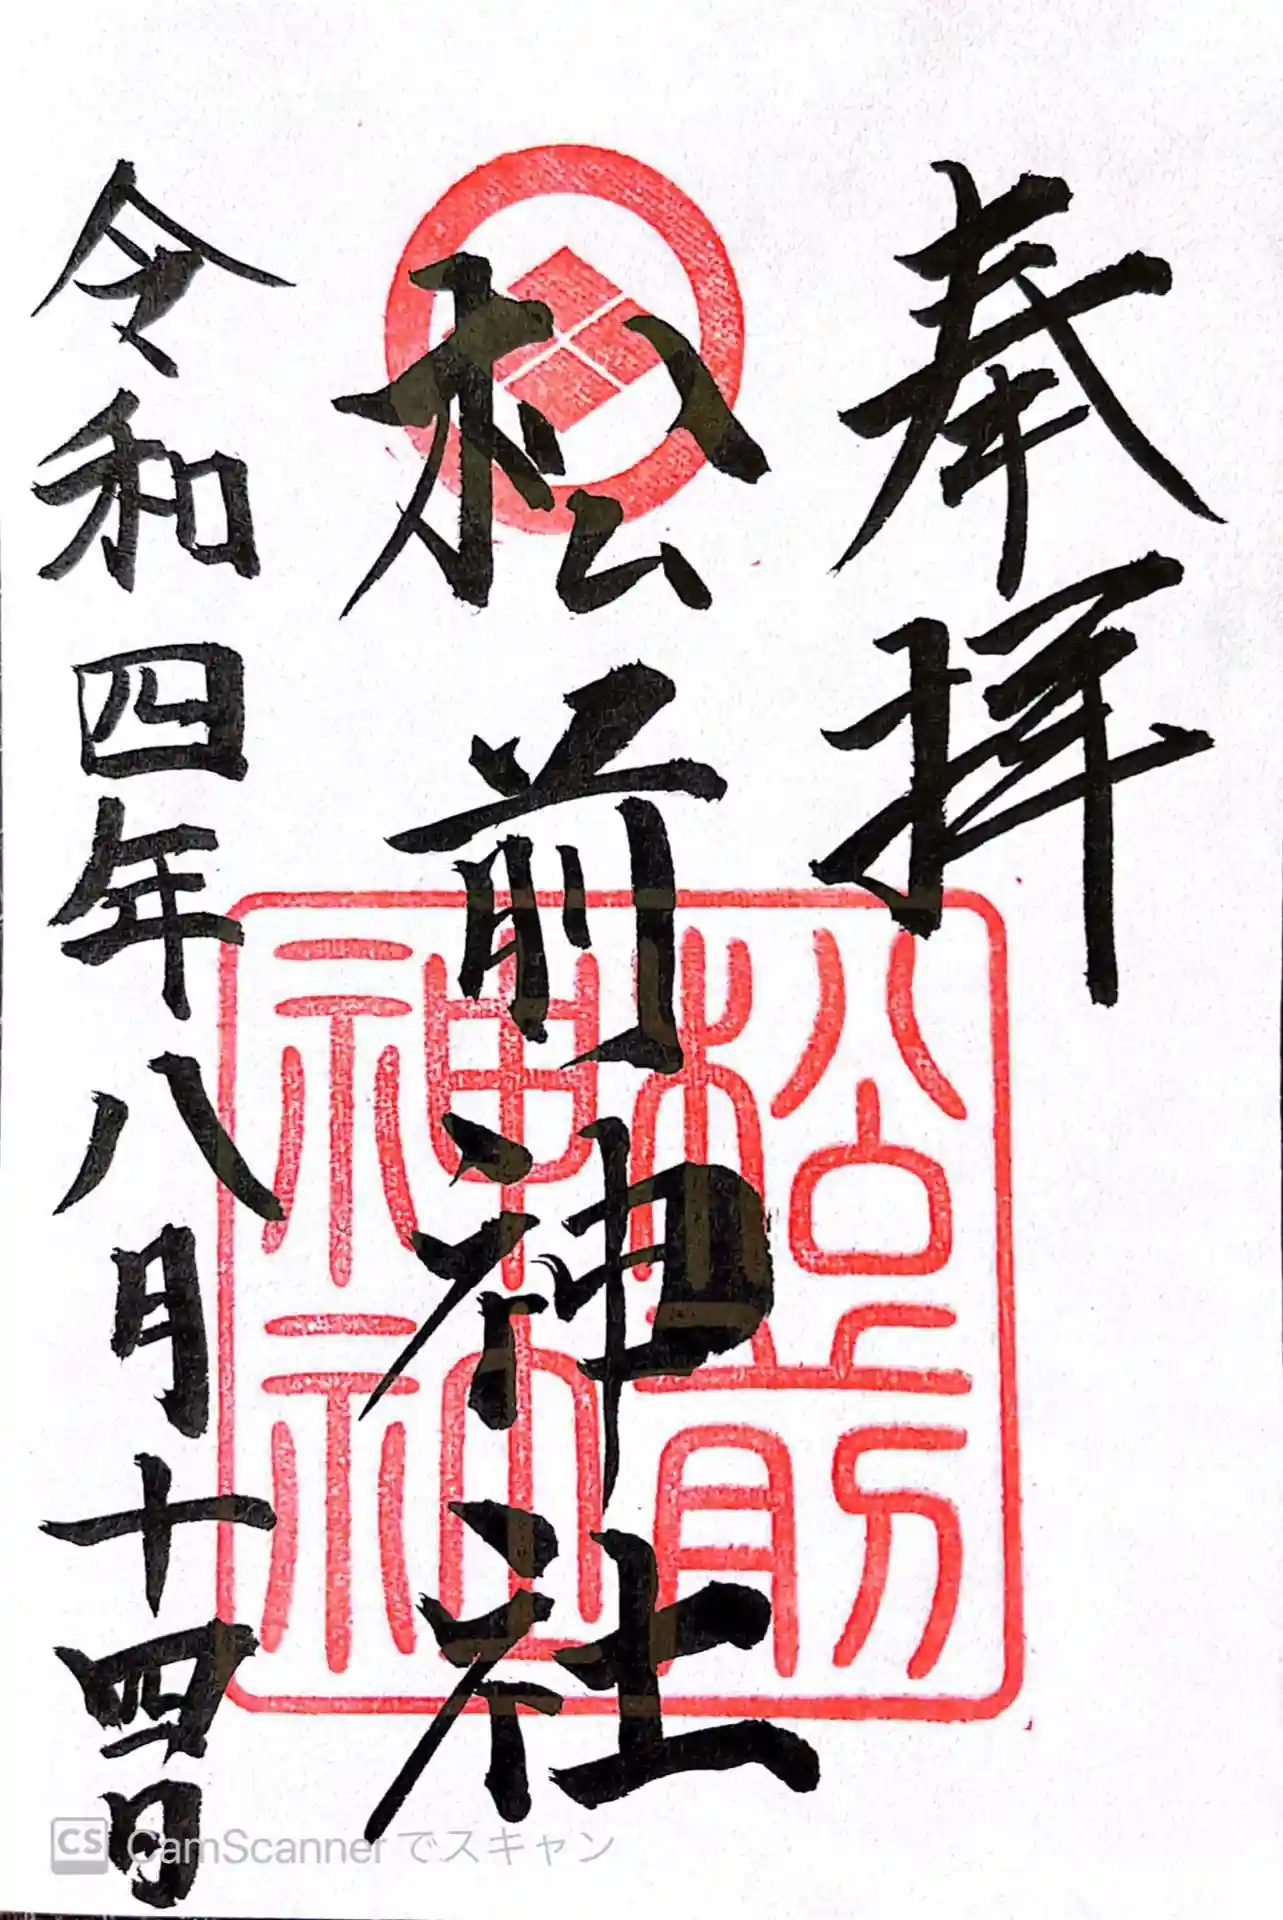 奉拝
松前神社
令和四年八月十四日
松前
神社
CS CamScannerでスキャン